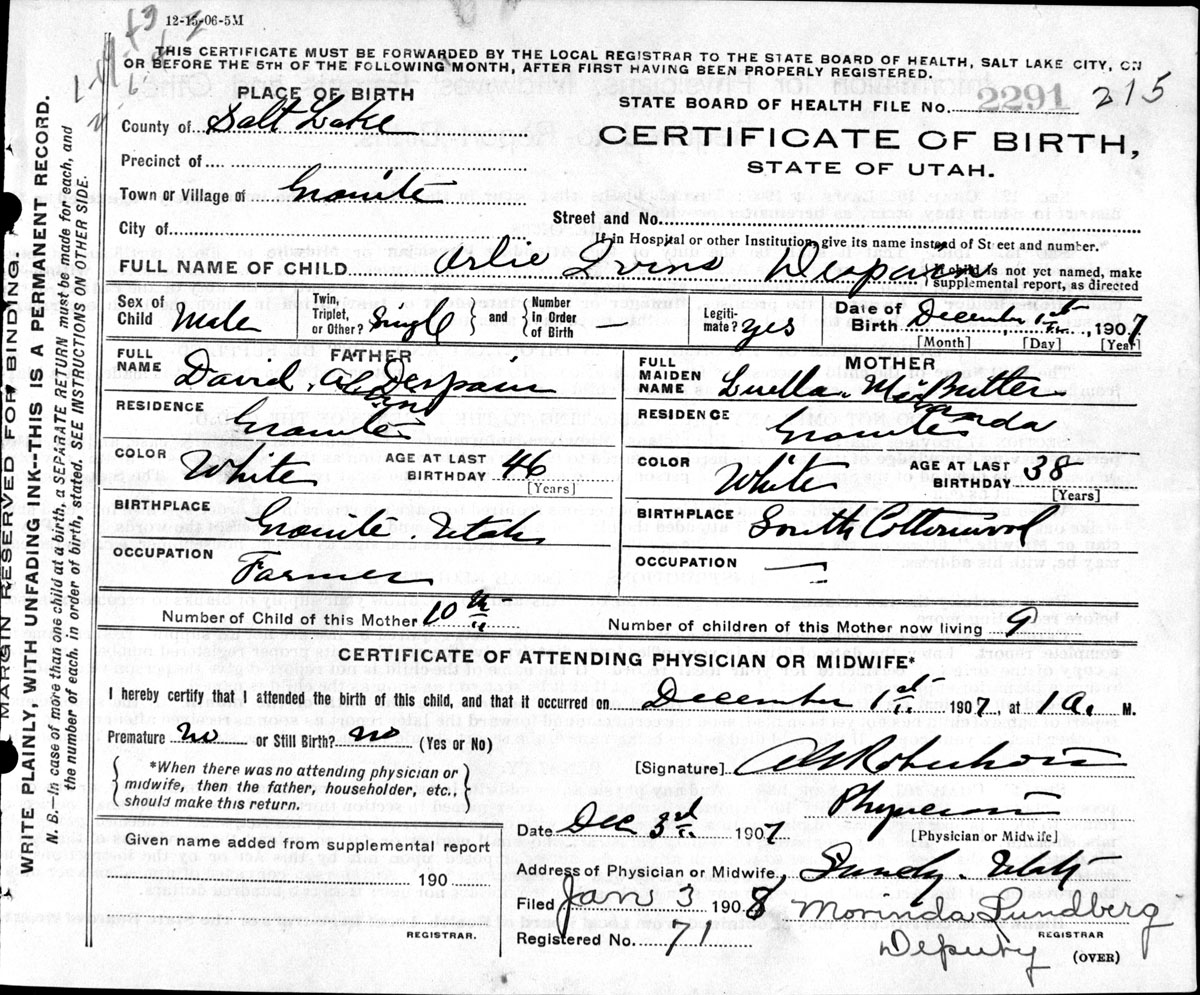 12-15-06-5M
THIS CERTIFICATE MUST BE FORWARDED BY THE LOCAL REGISTRAR TO THE STATE BOARD OF HEALTH, SALT LAKE CITY, ON
OR BEFORE THE 5TH OF THE FOLLOWING MONTH, AFTER FIRST HAVING BEEN PROPERLY REGISTERED.
MARGIN RESERVED FOR BINDING.
WRITE PLAINLY, WITH UNFADING INK--THIS IS A PERMANENT RECORD.
N. B.--In case of more than one child at a birth, a SEPARATE RETURN must be made for each, and
the number of each, in order of birth, stated. SEE INSTRUCTIONS ON OTHER SIDE.
PLACE OF BIRTH
County of Salt Lake
Precinct of
Town or Village of Granite
City of
STATE BOARD OF HEALTH FILE NO. 2291 215
CERTIFICATE OF BIRTH,
STATE OF UTAH.
Street and No.
If in Hospital or other Institution, give its name instead of Street and number.
FULL NAME OF CHILD Orlie Ivins Despain
If child is not yet named, make
supplemental report, as directed
Sex of Child Male
Twin, Triplet, or Other? Single
and
Number In Order of Birth —
Legitimate? yes
Date of Birth December 1st, 1907
[Month] [Day] [Year]
FATHER
FULL NAME David Despain
RESIDENCE Granite
COLOR White
AGE AT LAST BIRTHDAY 46
[Years]
BIRTHPLACE Granite, Utah
OCCUPATION Farmer
MOTHER
FULL MAIDEN NAME Luella Butler
RESIDENCE Granite
COLOR White
AGE AT LAST BIRTHDAY 38
[Years]
BIRTHPLACE South Cottonwood
OCCUPATION —
Number of Child of this Mother 10th
Number of children of this Mother now living 9
CERTIFICATE OF ATTENDING PHYSICIAN OR MIDWIFE*
I hereby certify that I attended the birth of this child, and that it occurred on December 1st 1907, at 1 A. M.
Premature no or Still Birth? no (Yes or No)
*When there was no attending physician or
midwife, then the father, householder, etc.,
should make this return.
[Signature] Robertson
Physician
[Physician or Midwife]
Date Dec 3rd 1907.
Address of Physician or Midwife Sandy, Utah
Given name added from supplemental report
190
REGISTRAR.
Filed Jan 3 1908 Morinda Lundberg
REGISTRAR
Registered No. 71 Deputy
(OVER)